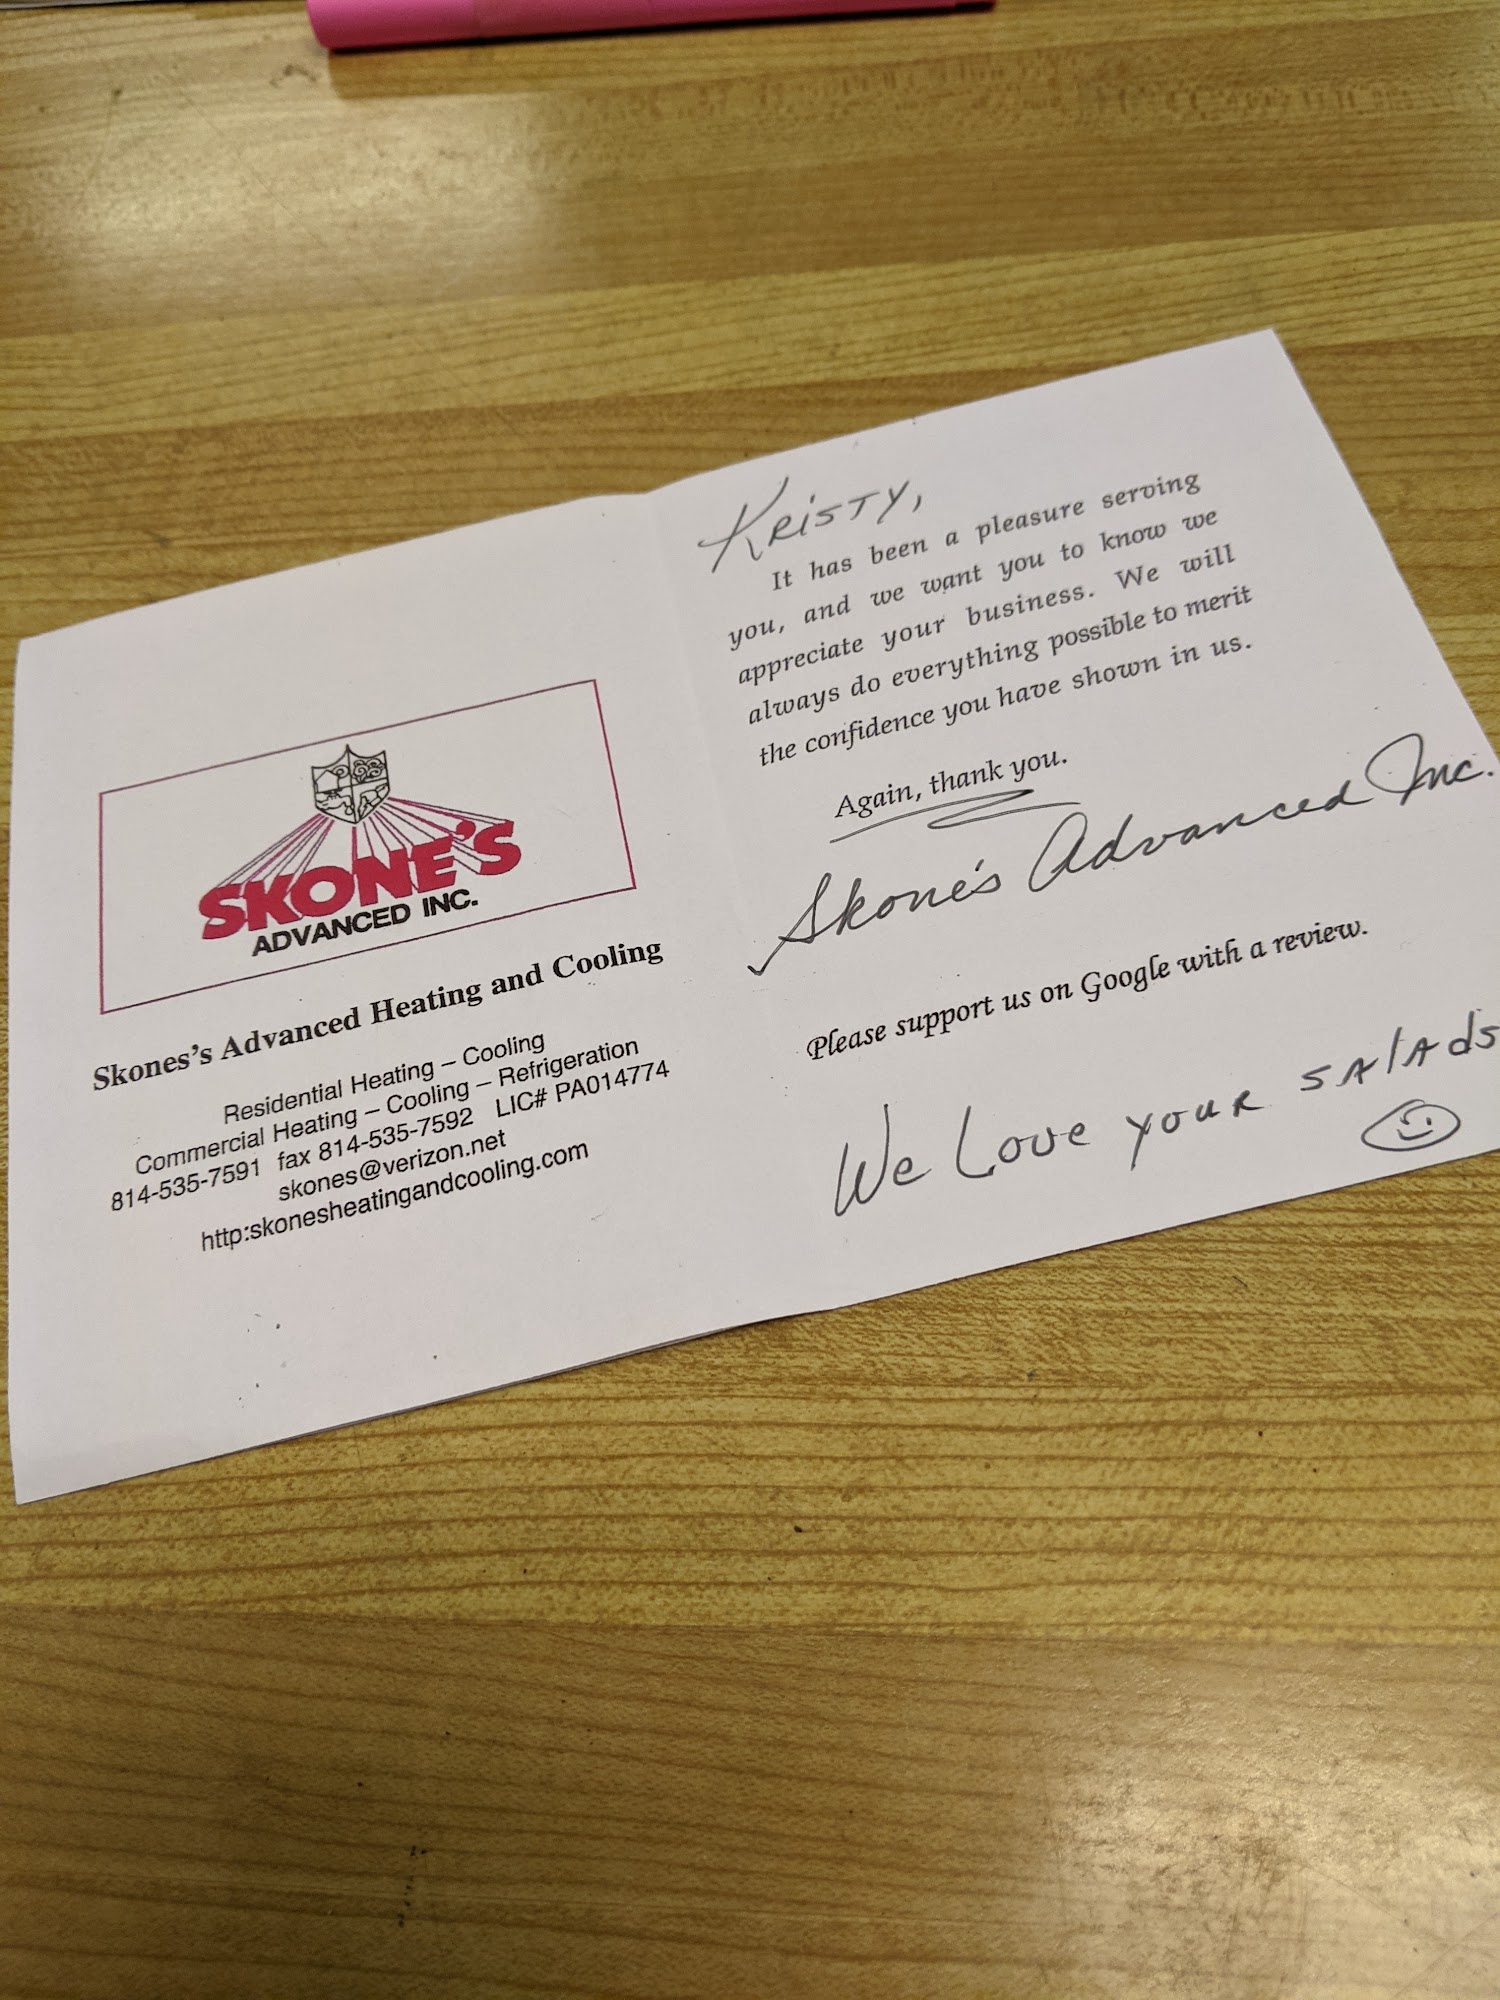 SKONE'S
ADVANCED INC.
Skones's Advanced Heating and Cooling
Residential Heating – Cooling
Commercial Heating – Cooling – Refrigeration
814-535-7591 fax 814-535-7592 LIC# PA014774
skones@verizon.net
http:skonesheatingandcooling.com
Kristy,
It has been a pleasure serving
you, and we want you to know we
appreciate your business. We will
always do everything possible to merit
the confidence you have shown in us.
Again, thank you.
Skone's Advanced Inc.
Please support us on Google with a review.
We Love your salads